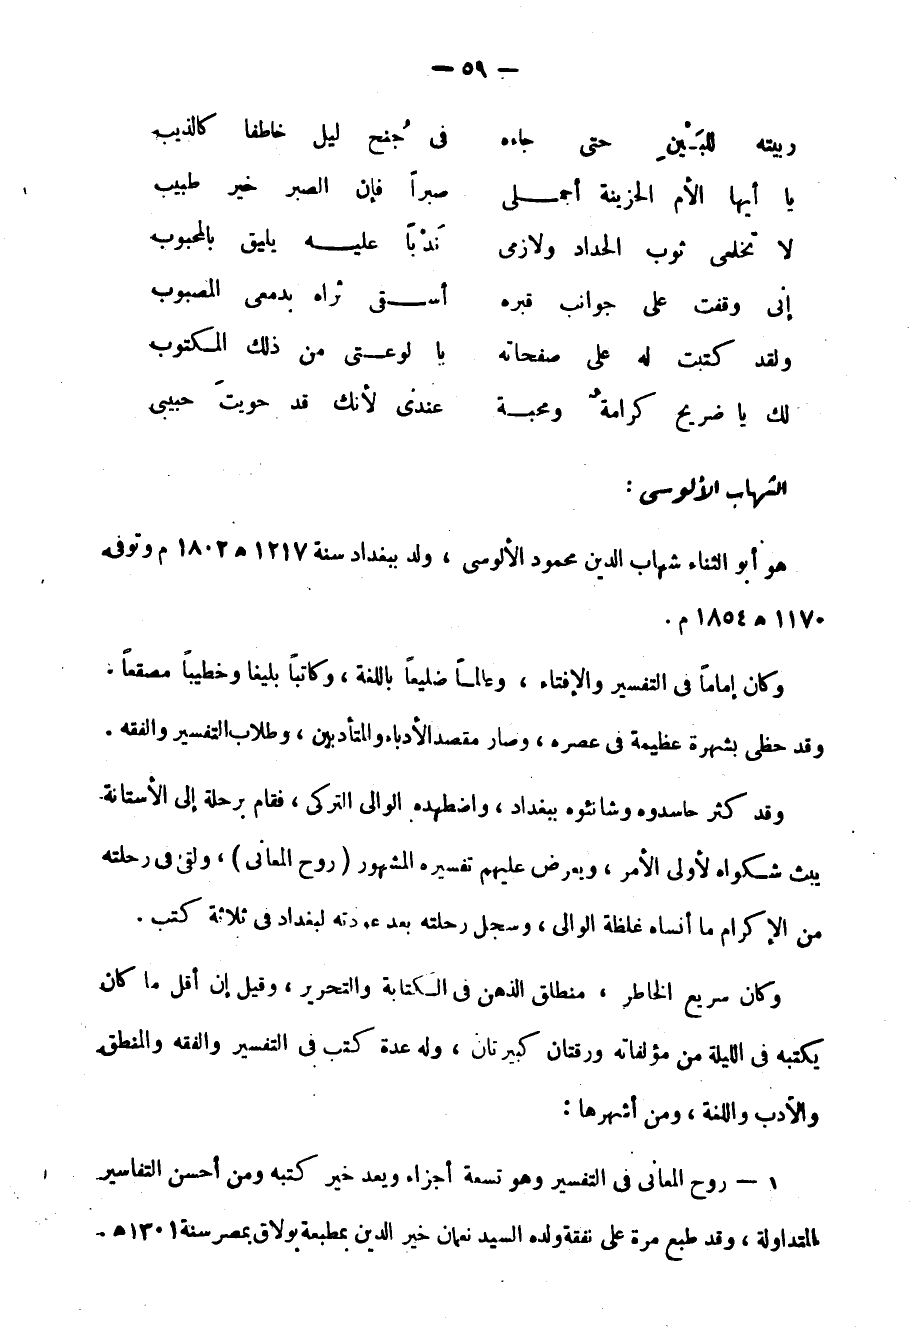 — ٥٩ —
ربيته للبَيْنِ حتى جاءه فى جُنح ليل خاطفا كالذيب
يا أيها الأم الحزينة أجمـلى صبراً فإن الصبر خير طبيب
لا تخلعى ثوب الحداد ولازمى نَدْبًا عليـه يليق بالمحبوب
إنى وقفت على جوانب قبره أسـقى ثراه بدمعى المصبوب
ولقد كتبت له على صفحاته يا لوعـتى من ذلك المكتوب
لك يا ضريح كرامةٌ ومحبـة عندى لأنك قد حويتَ حبيبى
الشهاب الألوسى :
هو أبو الثناء شهاب الدين محمود الألوسى ، ولد ببغداد سنة ١٢١٧ ه ١٨٠٢ م وتوفى
١١٧٠ ه ١٨٥٤ م .
وكان إماماً فى التفسير والإفتاء ، وعالمـاً ضليعاً باللغة ، وكاتباً بليغا وخطيباً مصقعاً .
وقد حظى بشهرة عظيمة فى عصره ، وصار مقصد الأدباء والمتأدبين ، وطلاب التفسير والفقه .
وقد كثر حاسدوه وشانئوه ببغداد ، واضطهده الوالى التركى ، فقام برحلة إلى الأستانة
يبث شـكواه لأولى الأمر ، ويعرض عليهم تفسيره المشهور ( روح المعانى ) ، ولقى فى رحلته
من الإكرام ما أنساه غلظة الوالى ، وسجل رحلته بعد عودته لبغداد فى ثلاثة كتب .
وكان سريع الخاطر ، منطلق الذهن فى الكتابة والتحرير ، وقيل إن أقل ما كان
يكتبه فى الليلة من مؤلفاته ورقتان كبيرتان ، وله عدة كتب فى التفسير والفقه والمنطق
والأدب واللغة ، ومن أشهرها :
١ — روح المعانى فى التفسير وهو تسعة أجزاء ويعد خير كتبه ومن أحسن التفاسير
المتداولة ، وقد طبع مرة على نفقة ولده السيد نعمان خير الدين بمطبعة بولاق بمصر سنة ١٣٠١ ه .